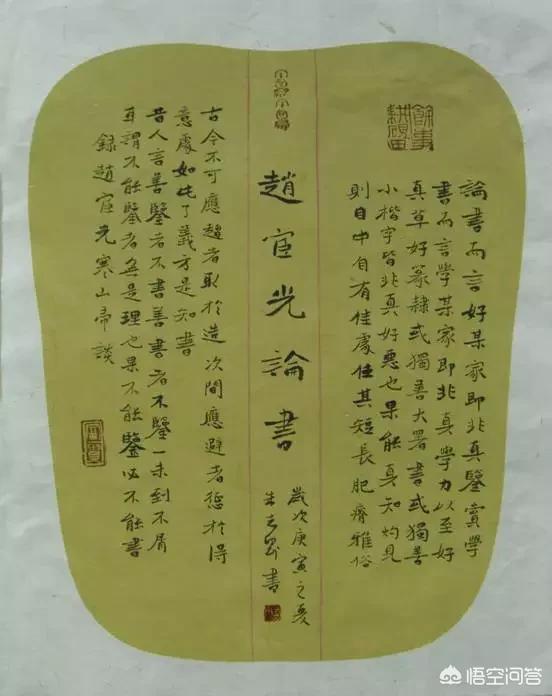 餘事
耕硯田
論書而言好某家即非真鑒賞學
書而言學某家即非真學力以至好
真草好篆隸或獨善大署書或獨善
小楷字皆非真好惡也果能真知灼見
則目中自有佳處任其短長肥瘠雅俗
趙宦光論書
歲次庚寅之夏
朱書
古今不可應趨者取於造次間應避者愆於得
意處如此了義方是知書
昔人言善鑒者不書善書者不鑒一未到不屑
耳謂不能鑒者無是理也果不能鑒必不能書
錄趙宦光寒山帚談
悟空问答